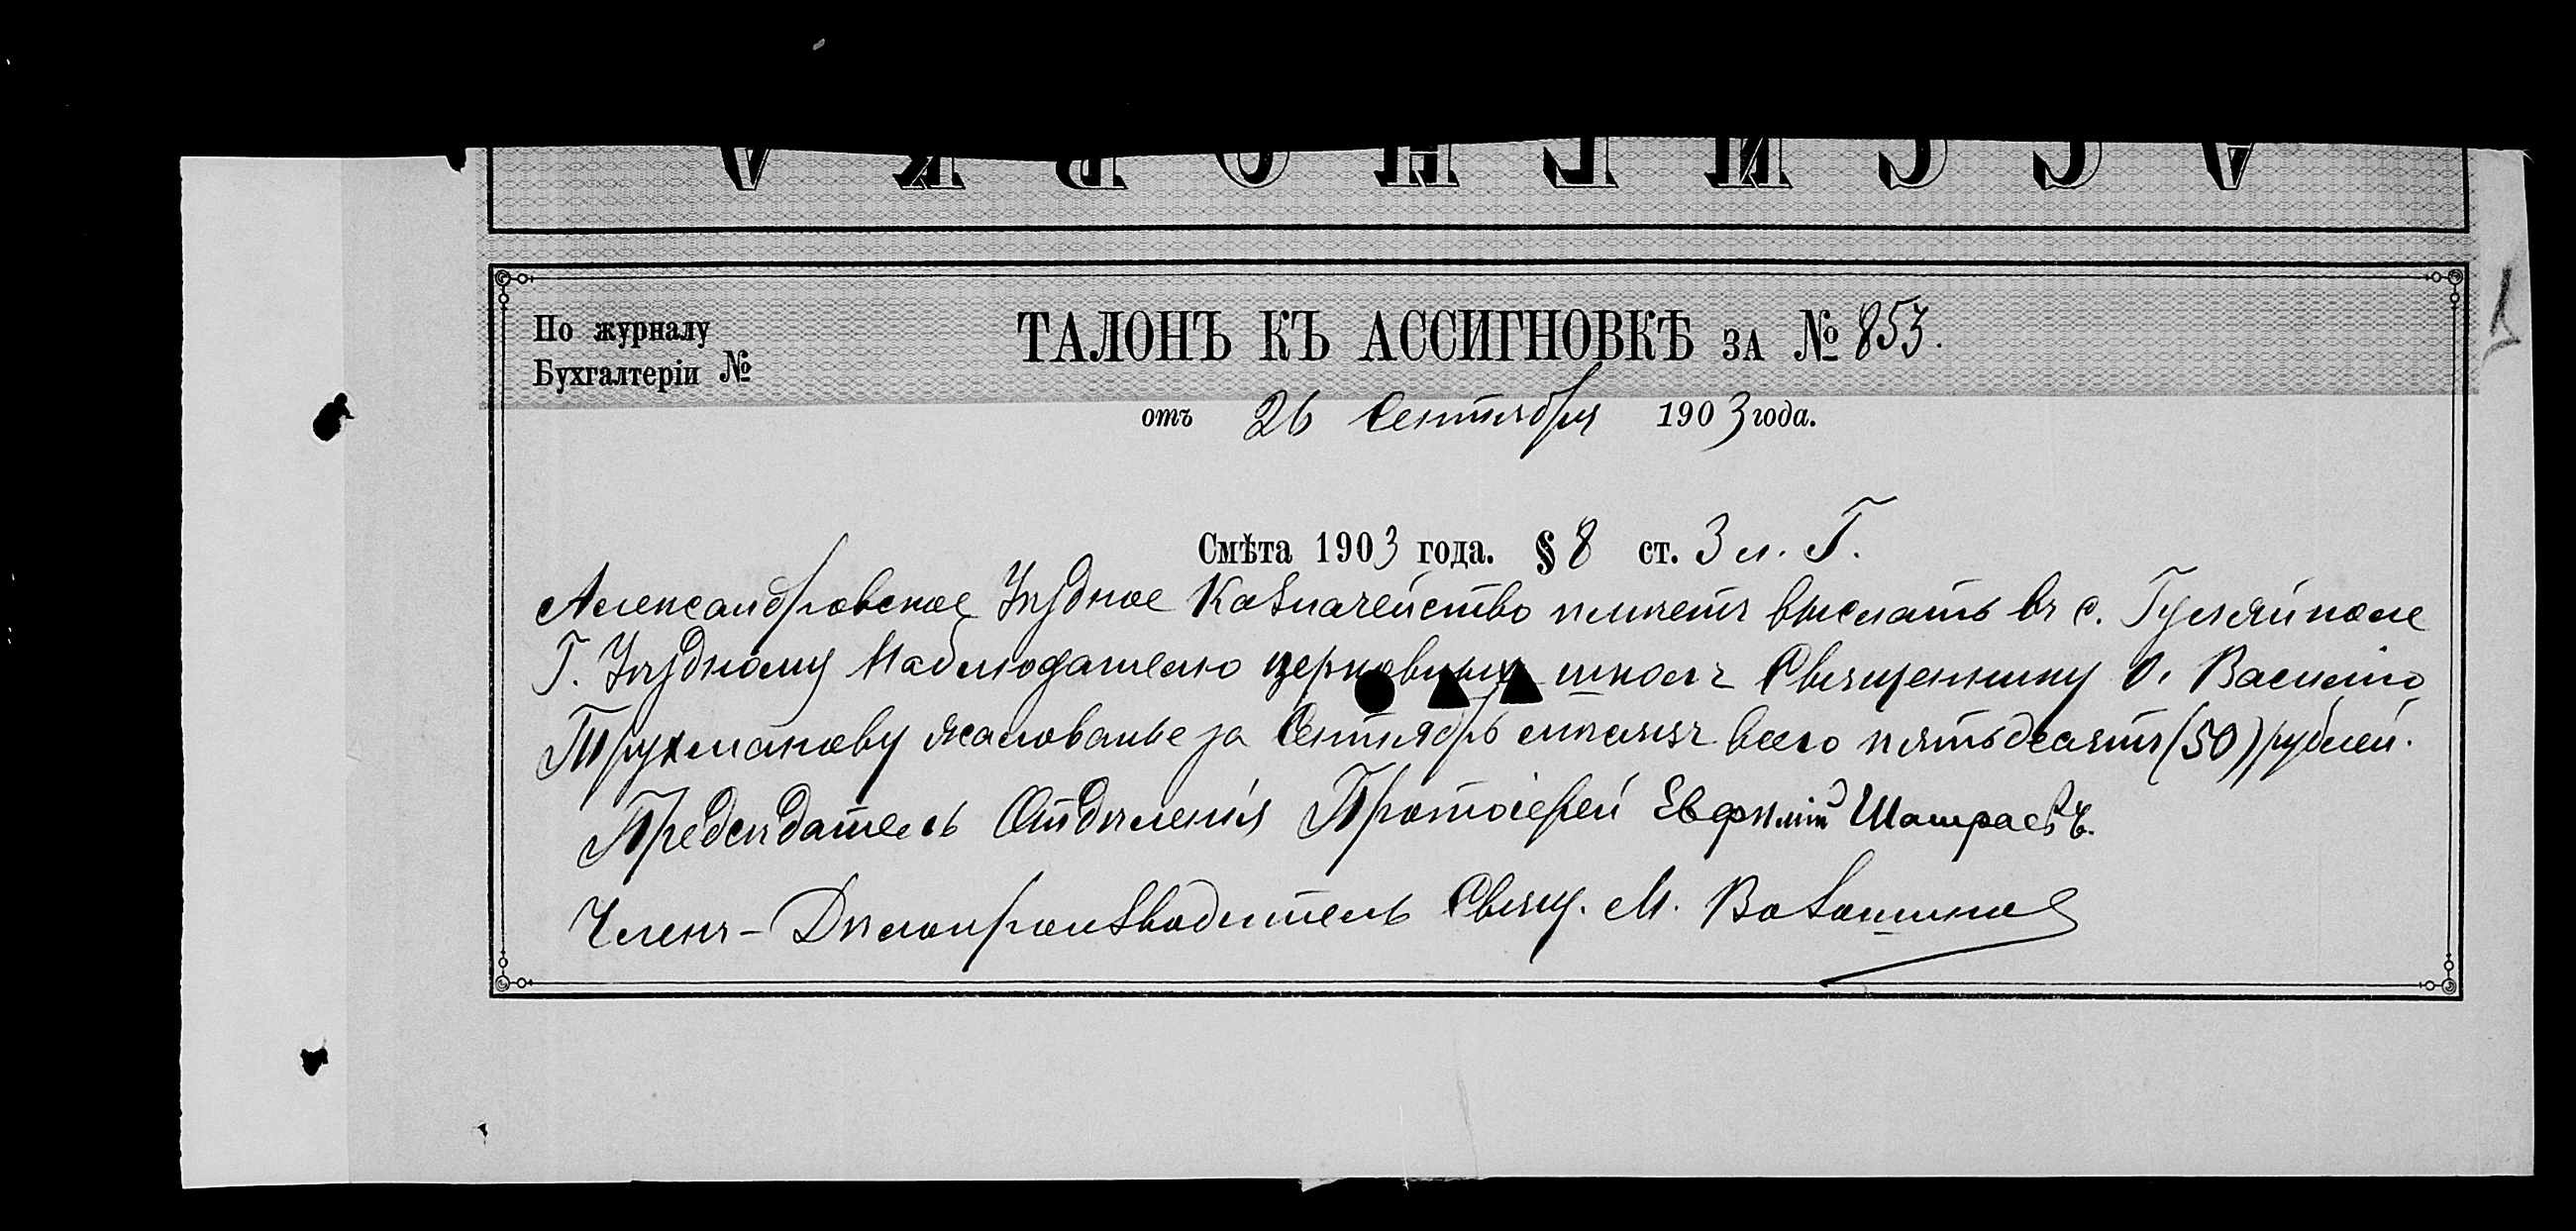 АССИГНОВКА
По журналу
Бухгалтеріи №
ТАЛОНЪ КЪ АССИГНОВКѢ ЗА № 853.
отъ 26 Сентября 1903 года.
Смѣта 1903 года. § 8 ст. 3 л. Г.
Александровское Уѣздное Казначейство имѣетъ выслать въ с. Гуляйполе
Г. Уѣздному Наблюдателю церковныхъ школъ Священнику о. Василію
Трухманову жалованье за Сентябрь мѣсяцъ всего пятьдесятъ (50) рублей.
Предсѣдатель Отдѣленія Протоіерей Евфимій
Членъ-Дѣлопроизводитель Свящ. М.